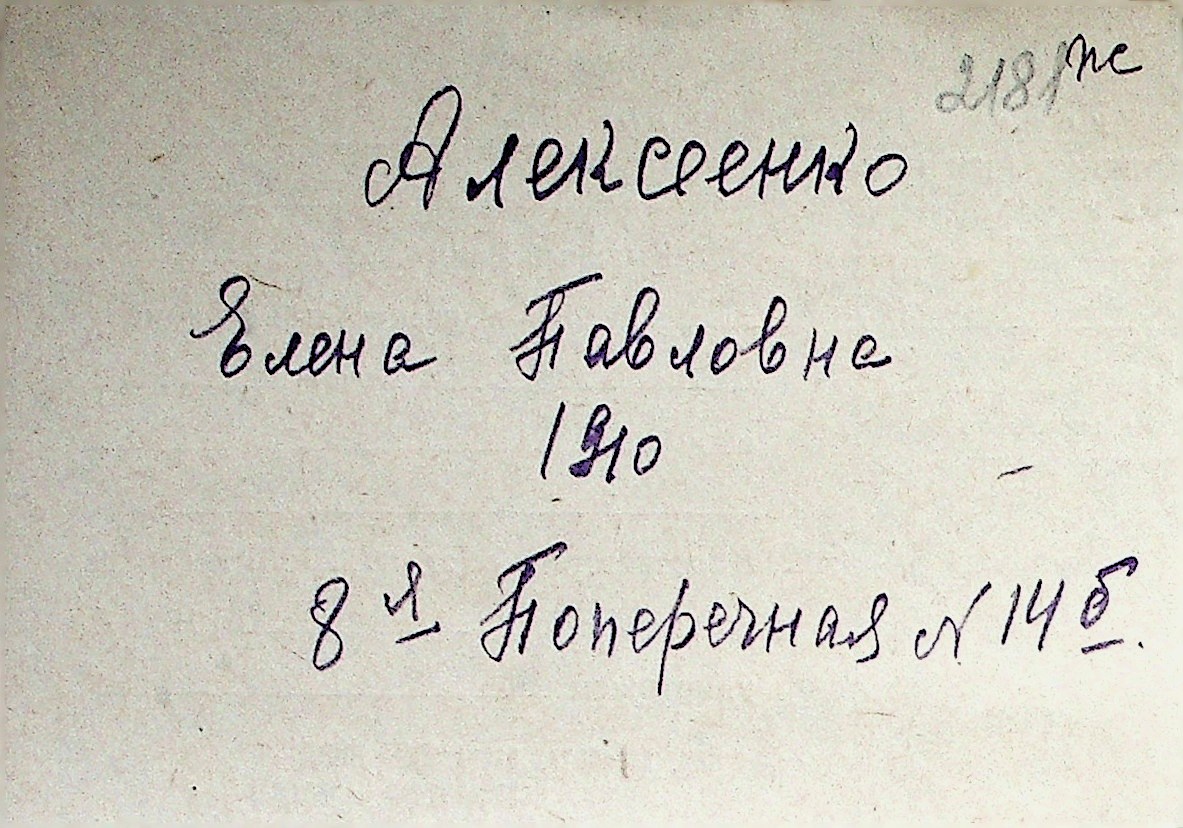 2181 пс
Алексеенко
Елена Павловна
1910
8я Поперечная N 14б.